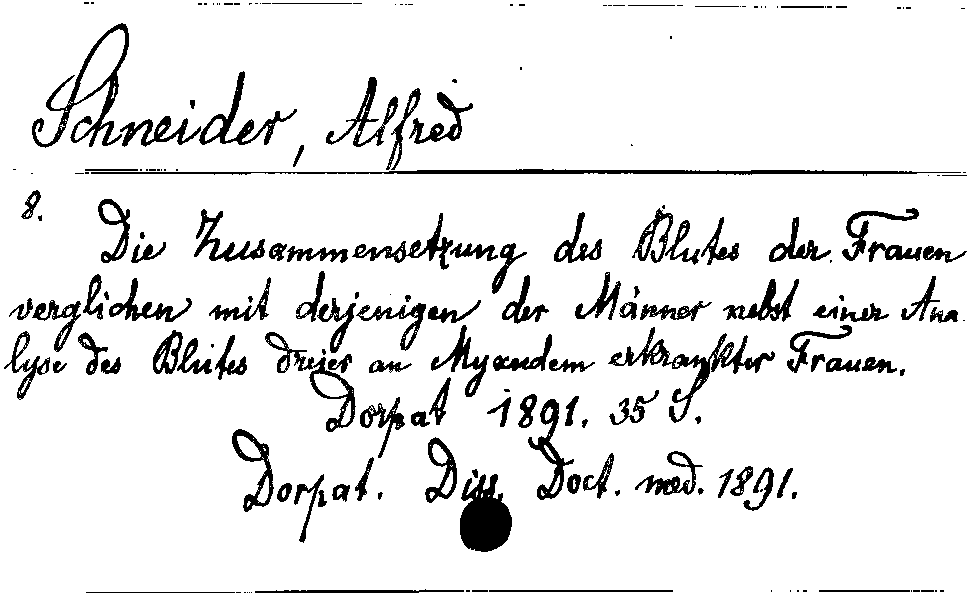 Schneider, Alfred
8.
Die Zusammensetzung des Blutes der Frauen
verglichen mit derjenigen der Männer nebst einer Ana
lyse des Blutes dreier an Myxödem erkrankter Frauen.
Dorpat 1891. 35 S.
Dorpat. Diss. Doct. med. 1891.